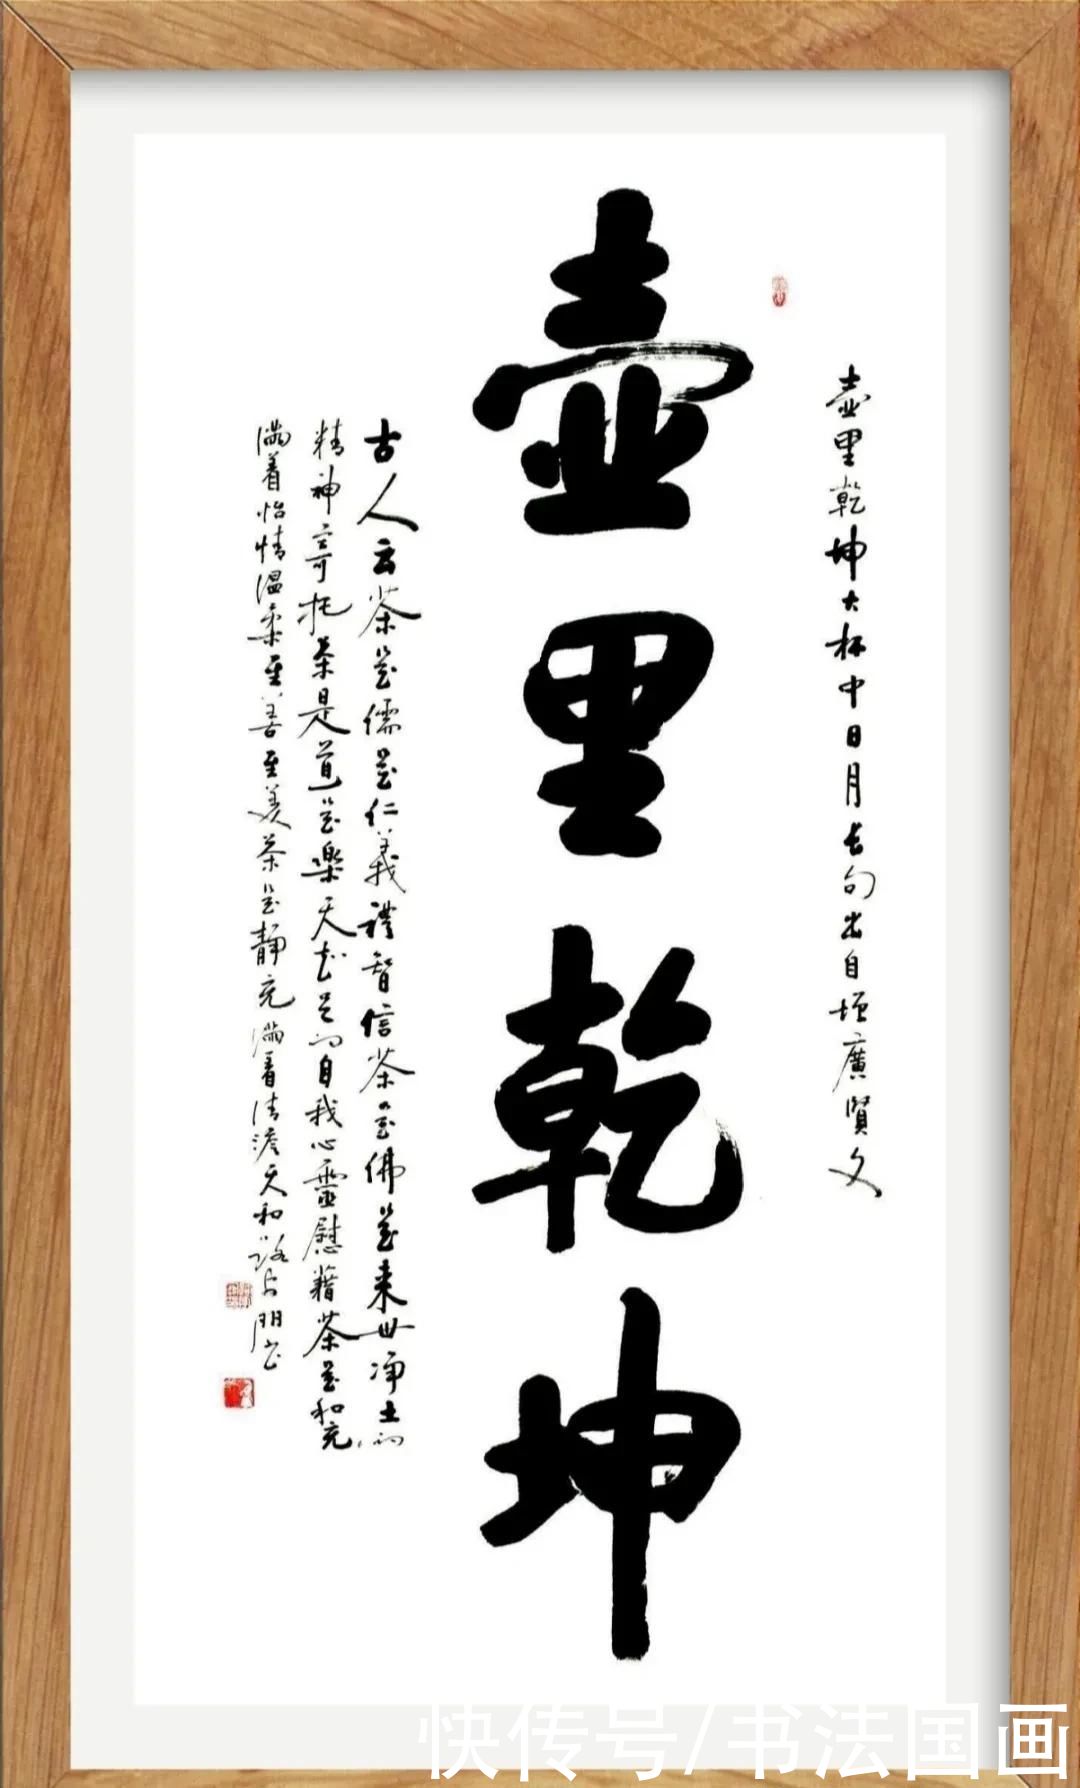 壺里乾坤大杯中日月长句出自增廣賢文
壺里乾坤
古人云茶是儒是仁義禮智信茶是佛是来世净土的
精神寄托茶是道是樂天知足的自我心靈慰藉茶是和充
满着怡情温柔至善至美茶是静充满着清澹天和路占朋书
快传号/书法国画